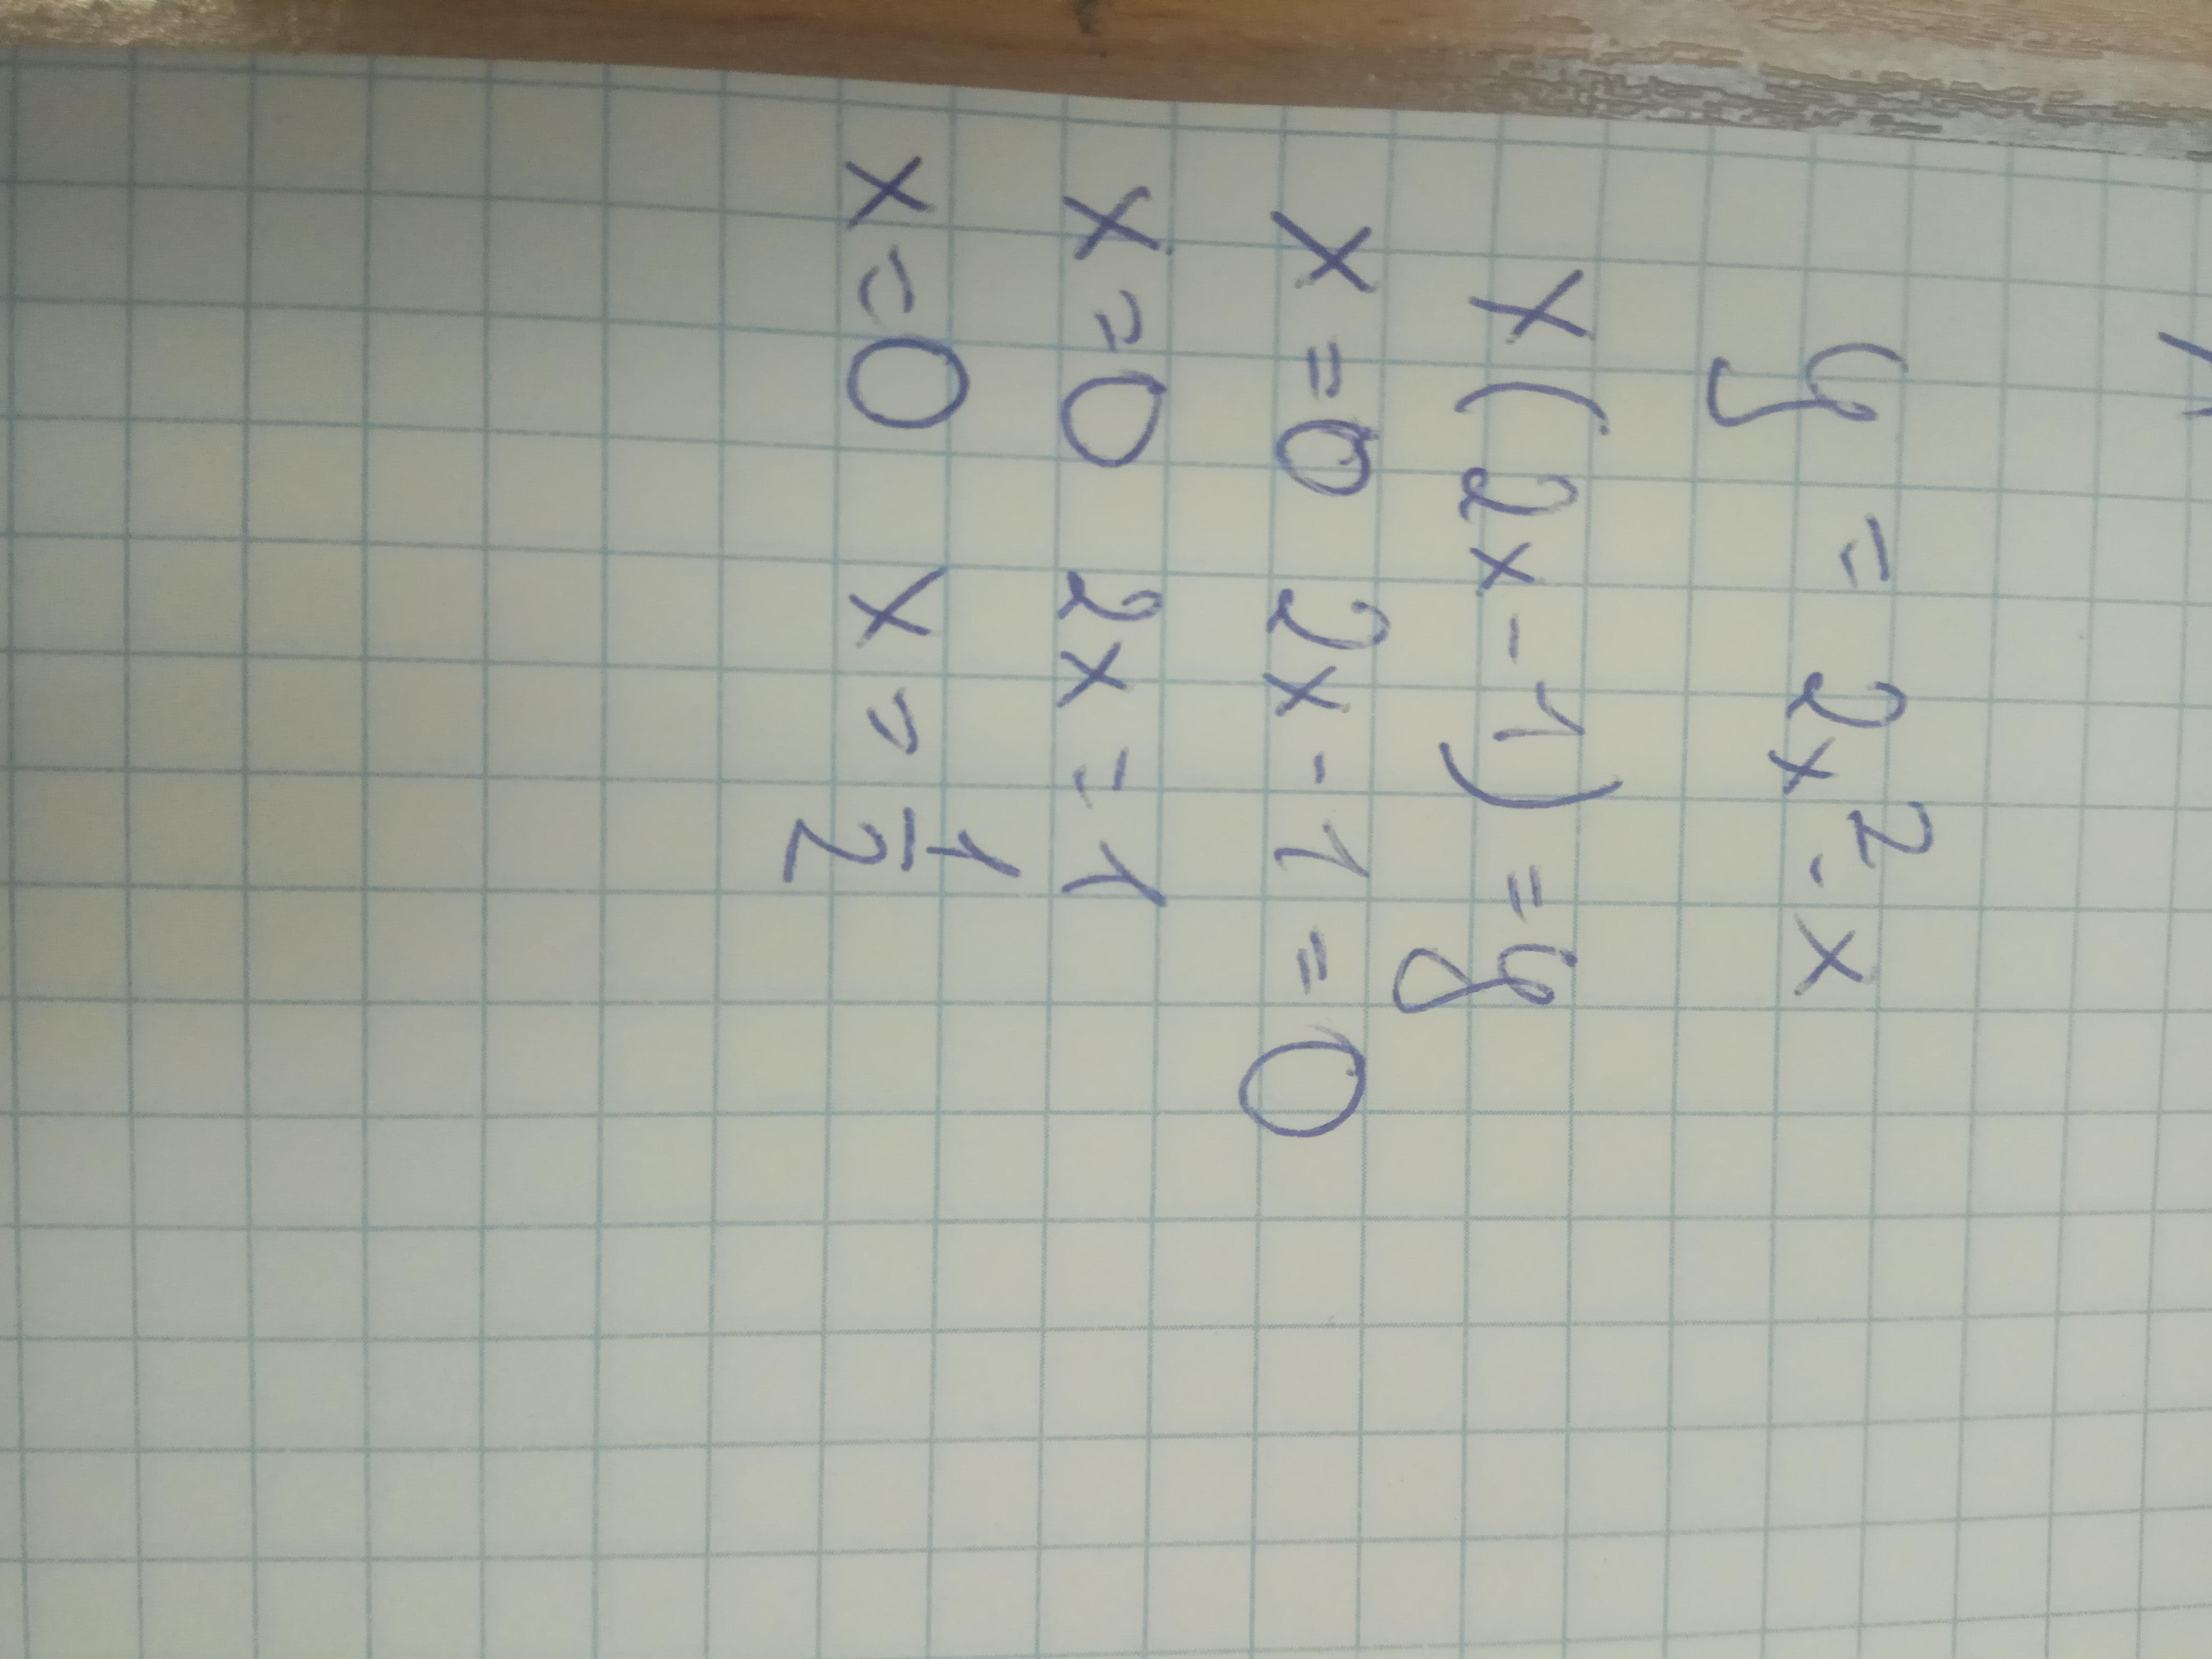 y = 2x² - x
x(2x-1) = y
x = 0 2x - 1 = 0
x = 0 2x = 1
x = 0 x = 1/2